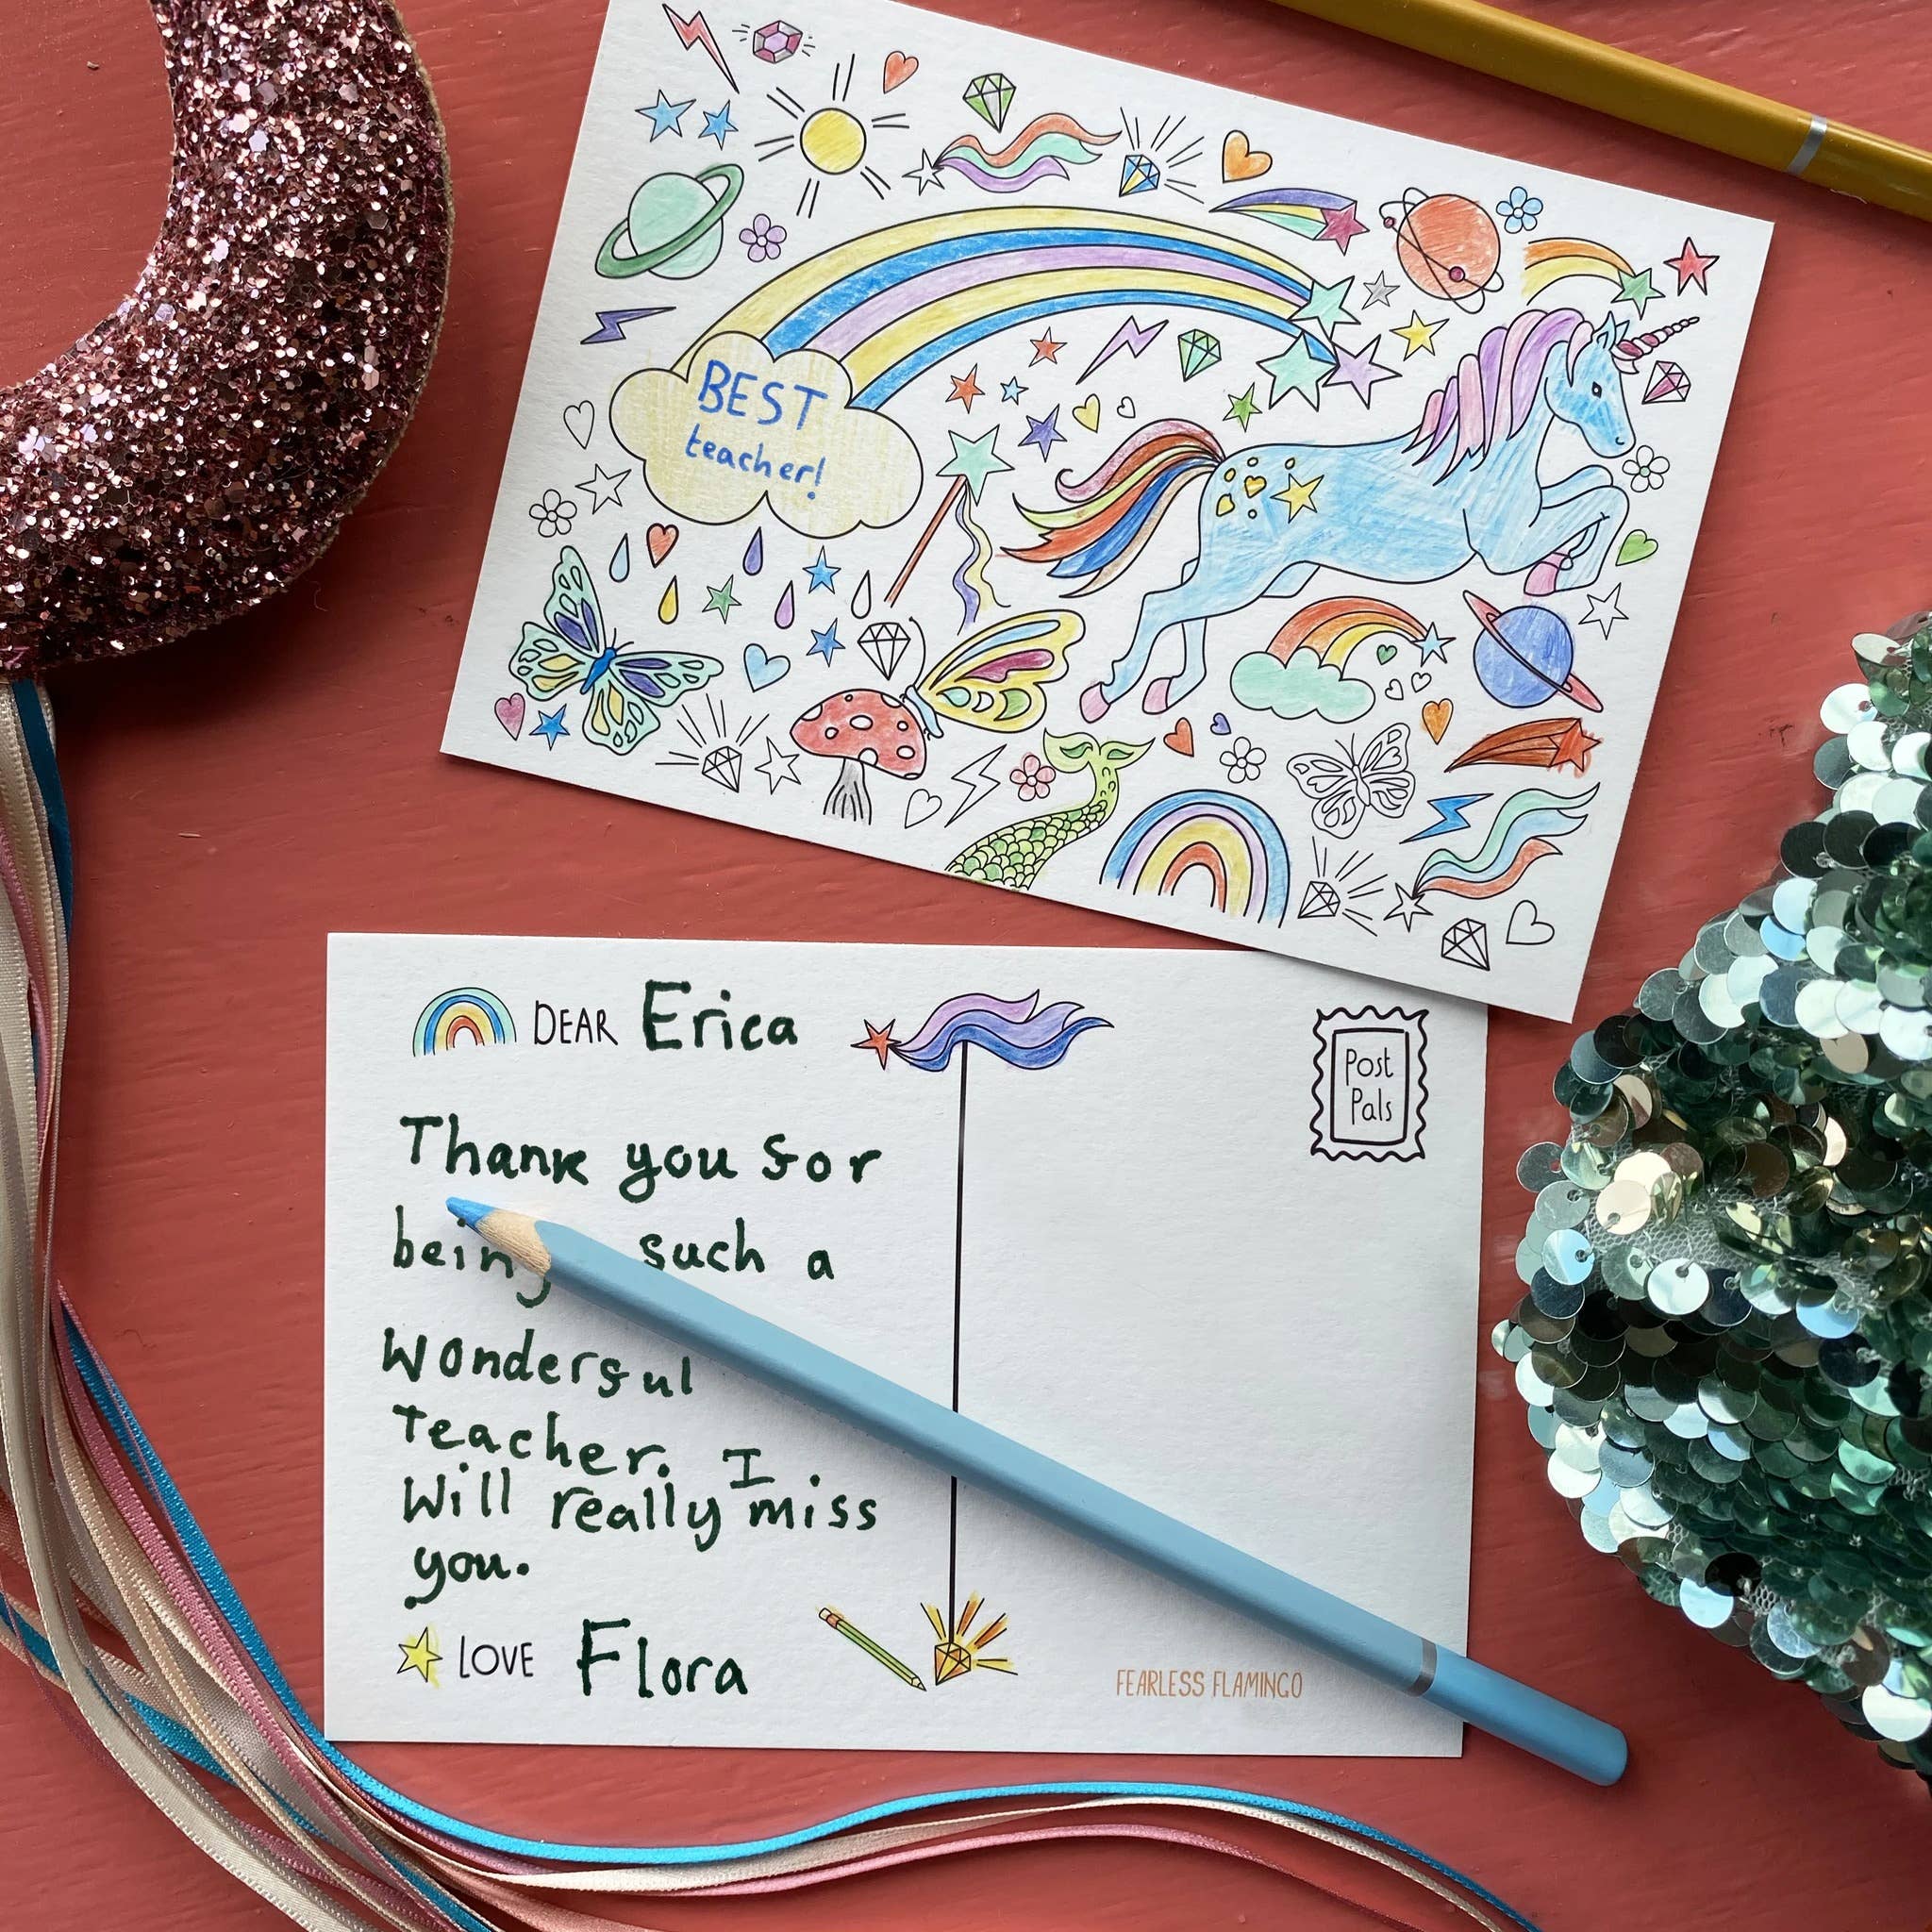 BEST
teacher!
DEAR Erica
Thank you for
being such a
Wonderful
Teacher. I
Will really miss
you.
LOVE Flora
Post
Pals
FEARLESS FLAMINGO